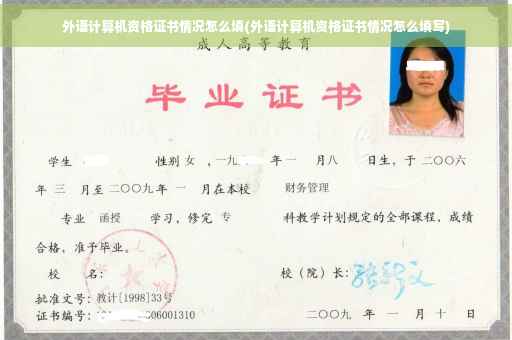 外语计算机资格证书情况怎么填(外语计算机资格证书情况怎么填写)
成人高等教育
毕业证书
学生 性别 女 ，一九 年一 月八 日生，于二〇〇六
年 三 月至二〇〇九年 一 月在本校 财务管理
专业 函授 学习，修完 专 科教学计划规定的全部课程，成绩
合格，准予毕业。
校 名： 校（院）长：
批准文号：教计[1998]33号
证书编号： 06001310 二〇〇九 年 一 月 十 日